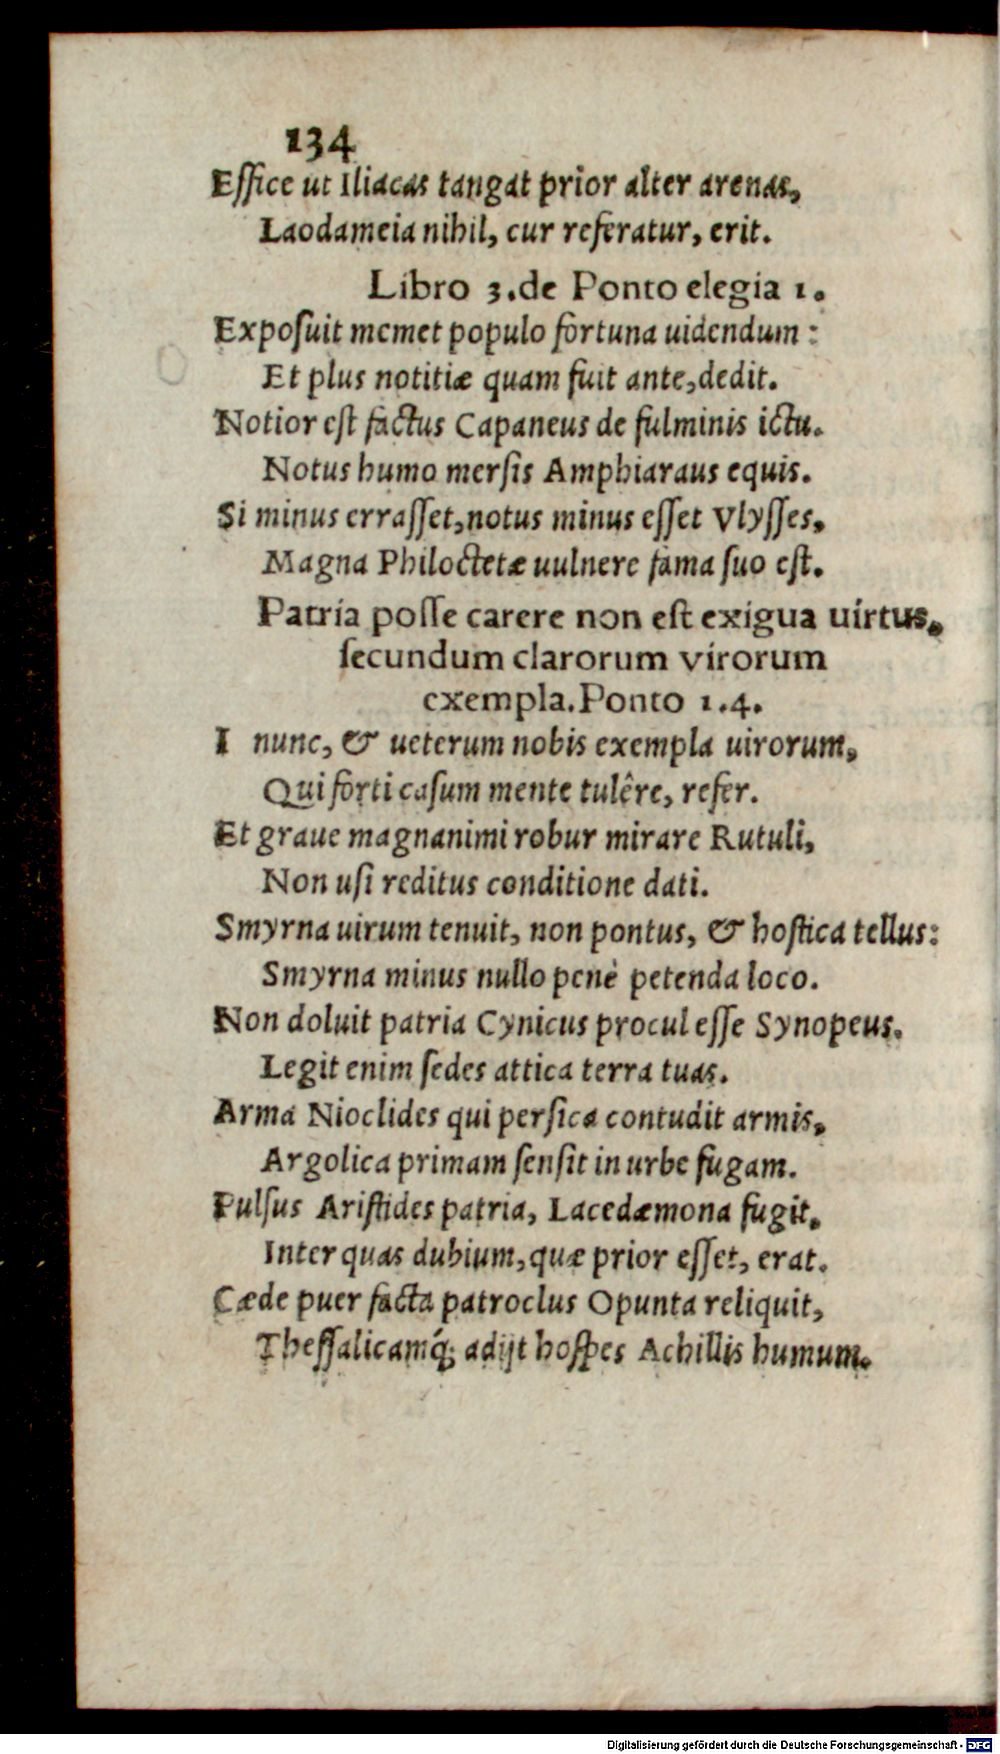 134
Effice ut Iliacas tangat prior alter arenas,
Laodameia nihil, cur referatur, erit.
Libro 3. de Ponto elegia 1.
Exposuit memet populo fortuna uidendum:
Et plus notitiæ quam fuit ante, dedit.
Notior est factus Capaneus de fulminis ictu.
Notus humo mersis Amphiaraus equis.
Si minus errasset, notus minus esset Vlysses,
Magna Philoctetæ uulnere fama suo est.
Patria posse carere non est exigua uirtus,
secundum clarorum virorum
exempla. Ponto 1.4.
I nunc, & ueterum nobis exempla uirorum,
Qui forti casum mente tulêre, refer.
Et graue magnanimi robur mirare Rutuli,
Non usi reditus conditione dati.
Smyrna uirum tenuit, non pontus, & hostica tellus:
Smyrna minus nullo penè petenda loco.
Non doluit patria Cynicus procul esse Synopeus.
Legit enim sedes attica terra tuas.
Arma Nioclides qui persica contudit armis,
Argolica primam sensit in urbe fugam.
Pulsus Aristides patria, Lacedæmona fugit,
Inter quas dubium, quæ prior esset, erat.
Cæde puer facta patroclus Opunta reliquit,
Thessalicamq́; adijt hospes Achillis humum.
Digitalisierung gefördert durch die Deutsche Forschungsgemeinschaft - DFG